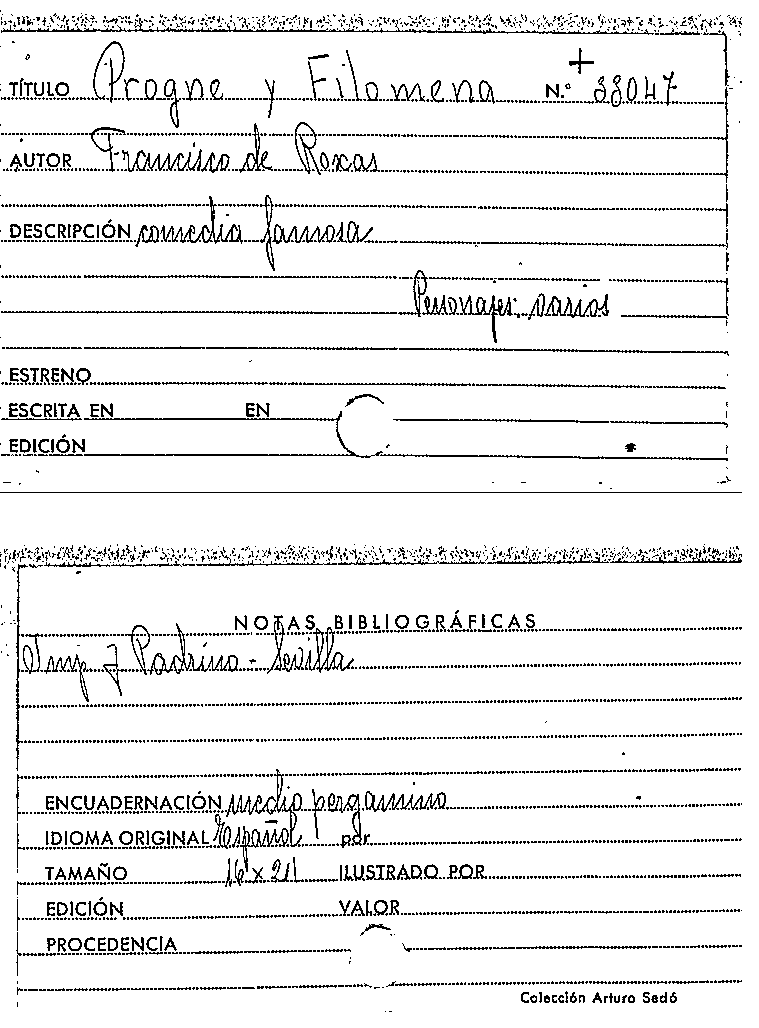 TÍTULO Progne y Filomena N.º 38047
+
AUTOR Francisco de Roxas
DESCRIPCIÓN comedia famosa
Personajes: varios
ESTRENO
ESCRITA EN EN
EDICIÓN
NOTAS BIBLIOGRÁFICAS
Imp. J Padrino - Sevilla
ENCUADERNACIÓN medio pergamino
IDIOMA ORIGINAL Español por
TAMAÑO 16 x 21 ILUSTRADO POR
EDICIÓN VALOR
PROCEDENCIA
Colección Arturo Sedó